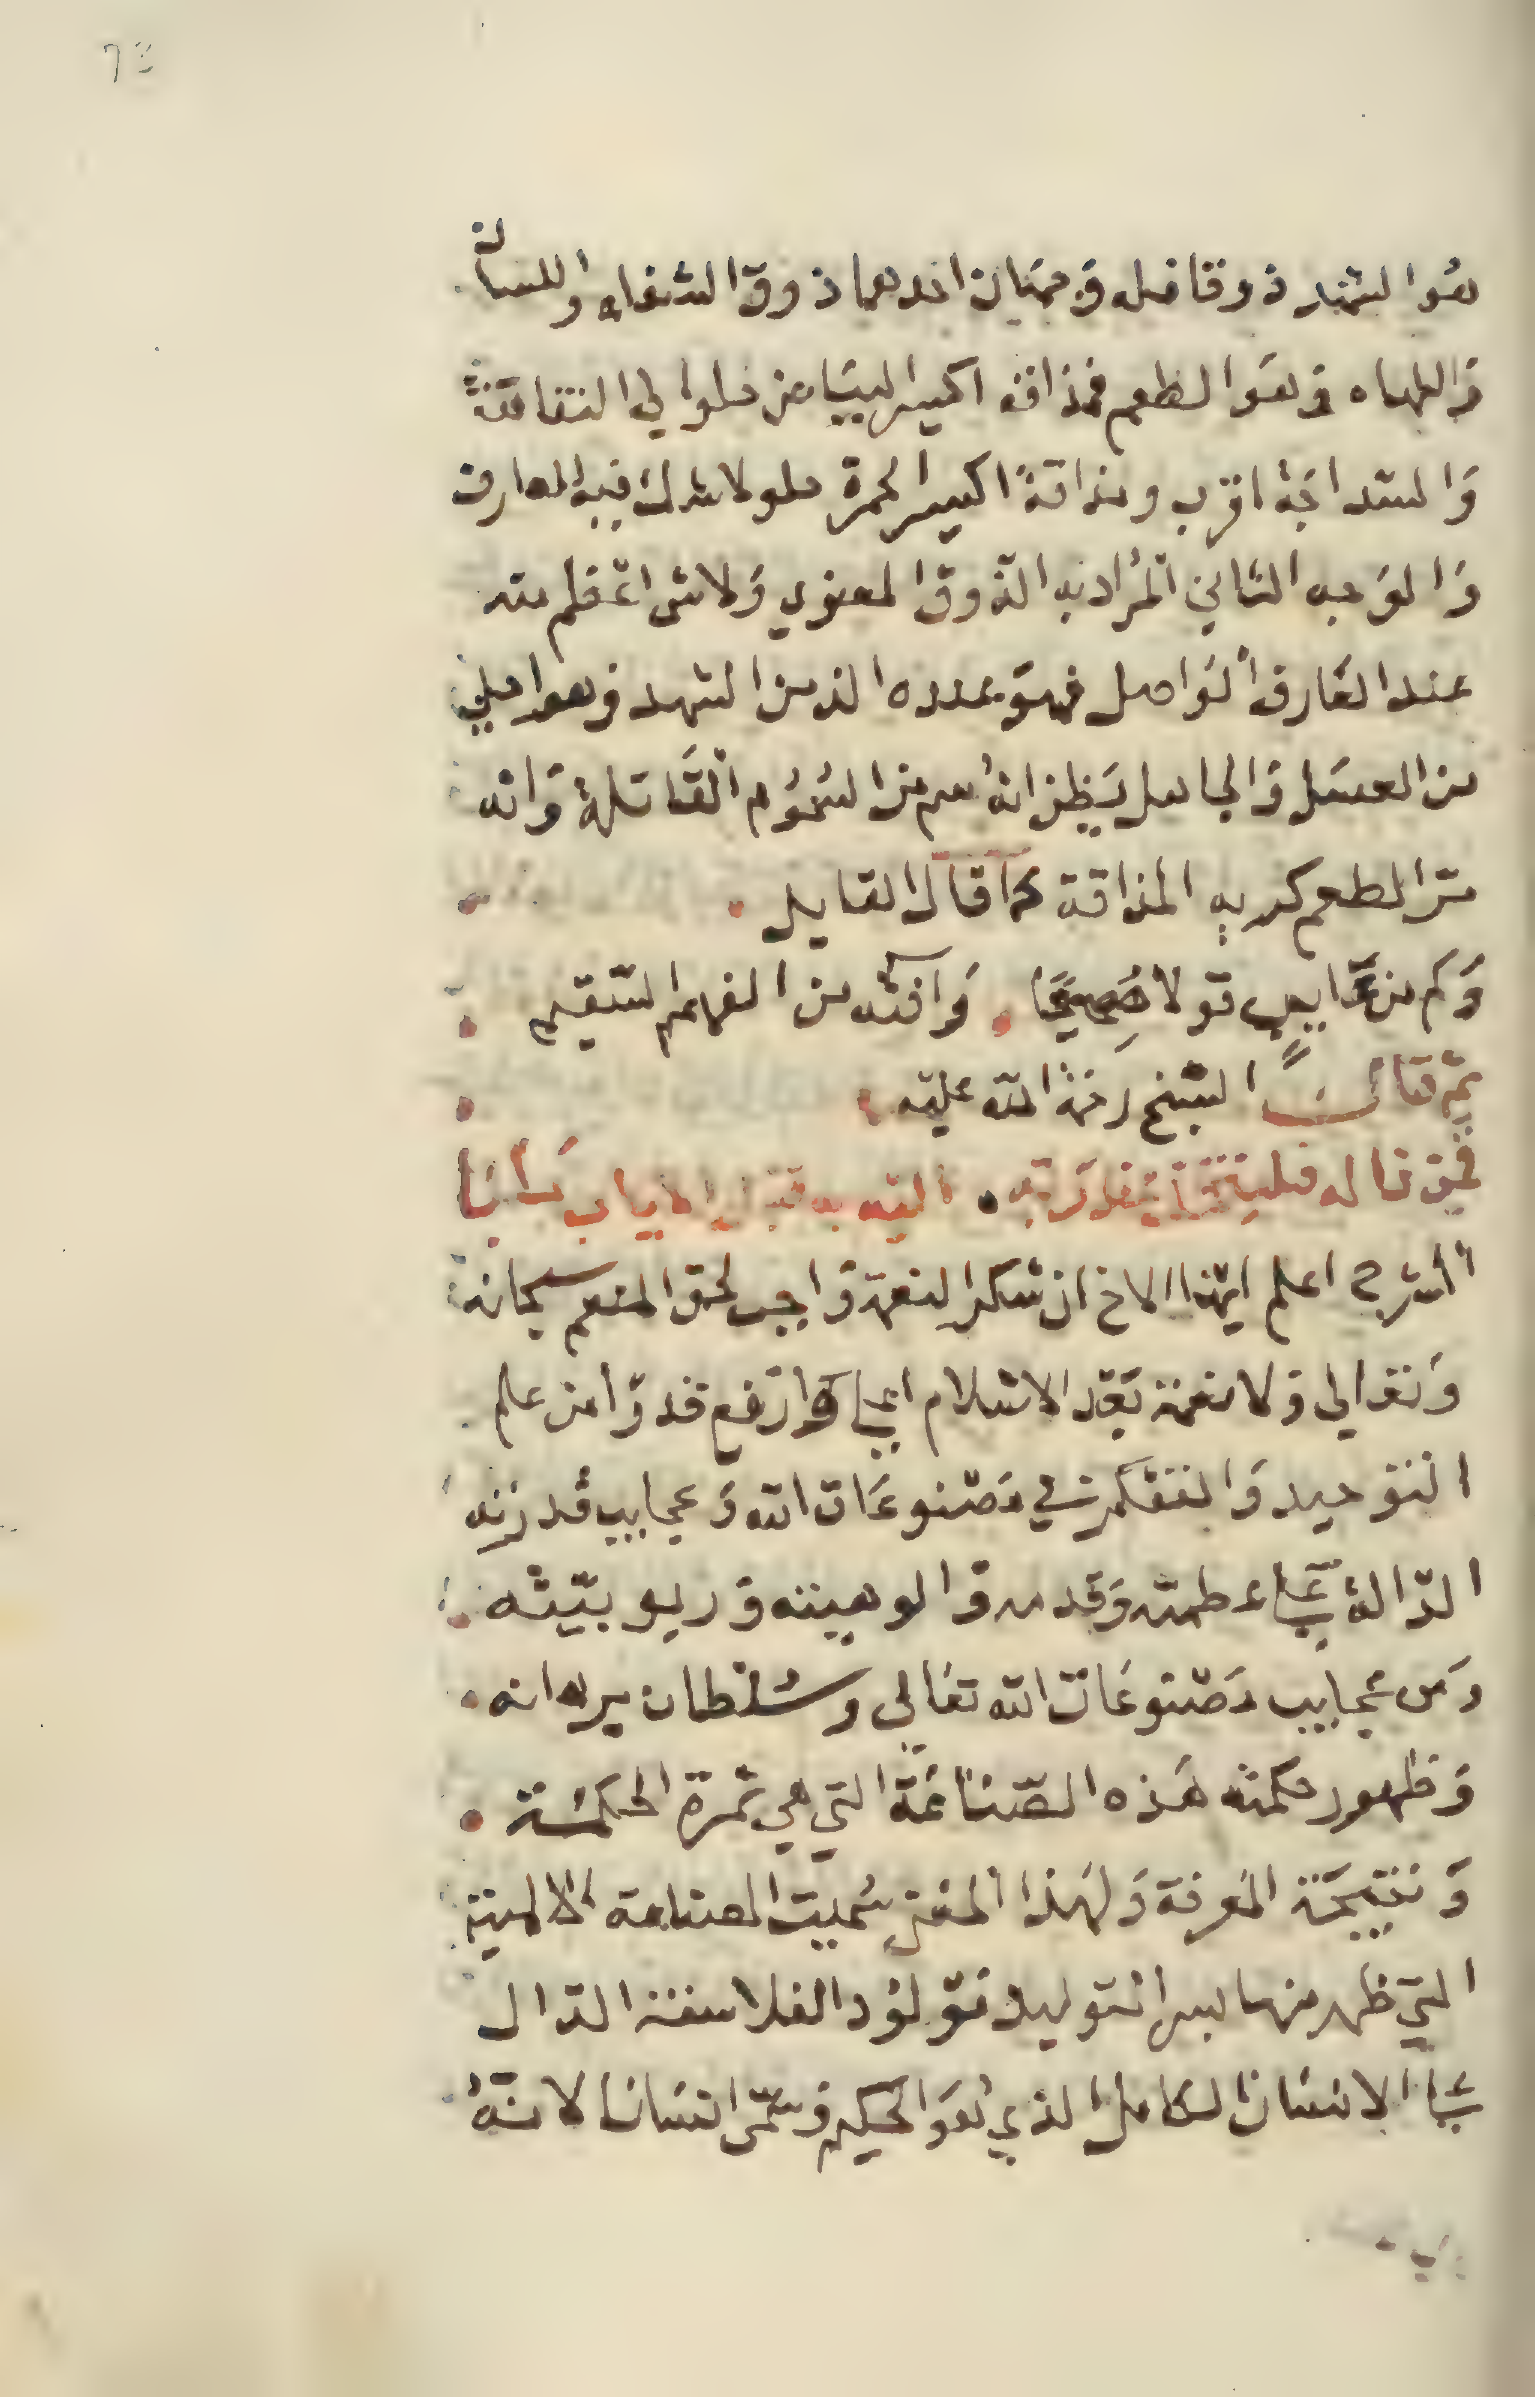 هو الشهد ذوقا فله وجهان احدهما ذوق الشفاه واللسان
واللهاه وهو الطعم فمذاقة اكسير البياض حلو الي التفاهة
والسداجة اقرب ومذاقة اكسير الحمرة حلو لا شك فيه للعارف
وَالوَجه الثاني المُراد به الذوق المعنوي وَلا شي اعظم منه
عند العَارف الوَاصل فهوَ عنده الذ من الشهد وهو احلي
من العسَل وَالجاهل يَظن انهُ سم من السُمُوم القَاتلة وَانه
مرّ الطعم كريه المذاقة كما قال القايل
وَكم من عَايبٍ قولا صَحِيحًا وَافته من الفهم السّقيم
ثم قال الشيخ رحمة الله عليه
فمن ناله فليتق الله رَبه اليه به قبل الاياب
الشرح اعلم ايهَا الاخ ان شكر النعمة وَاجب لحق المنعم سبحانه
وَتعالي وَلا نعمة بَعد الاسلام اعلا وارفع قدرا من علم
التوحيد وَالتفكر في مَصنوعَات الله وَعجايب قدرَته
الدّالة عَلي عظمته وَقدمه وَالوهيته وَربوبيّته
وَمن عجايب مَصنوعَات الله تعَالي وسُلطان برهانه
وَظهور حكمته هَذه الصّناعَة التي هي ثمرة الحكمَة
وَنتيجَة المَعرفة وَلهَذا المعنَي سُميت الصناعة الالهية
التي ظهر منها سر التوليد مَولوُد الفلاسفة الدّال
علي الانسَان الكامل الذي هُوَ الحكيم وَسمّي انسَانا لانّهُ